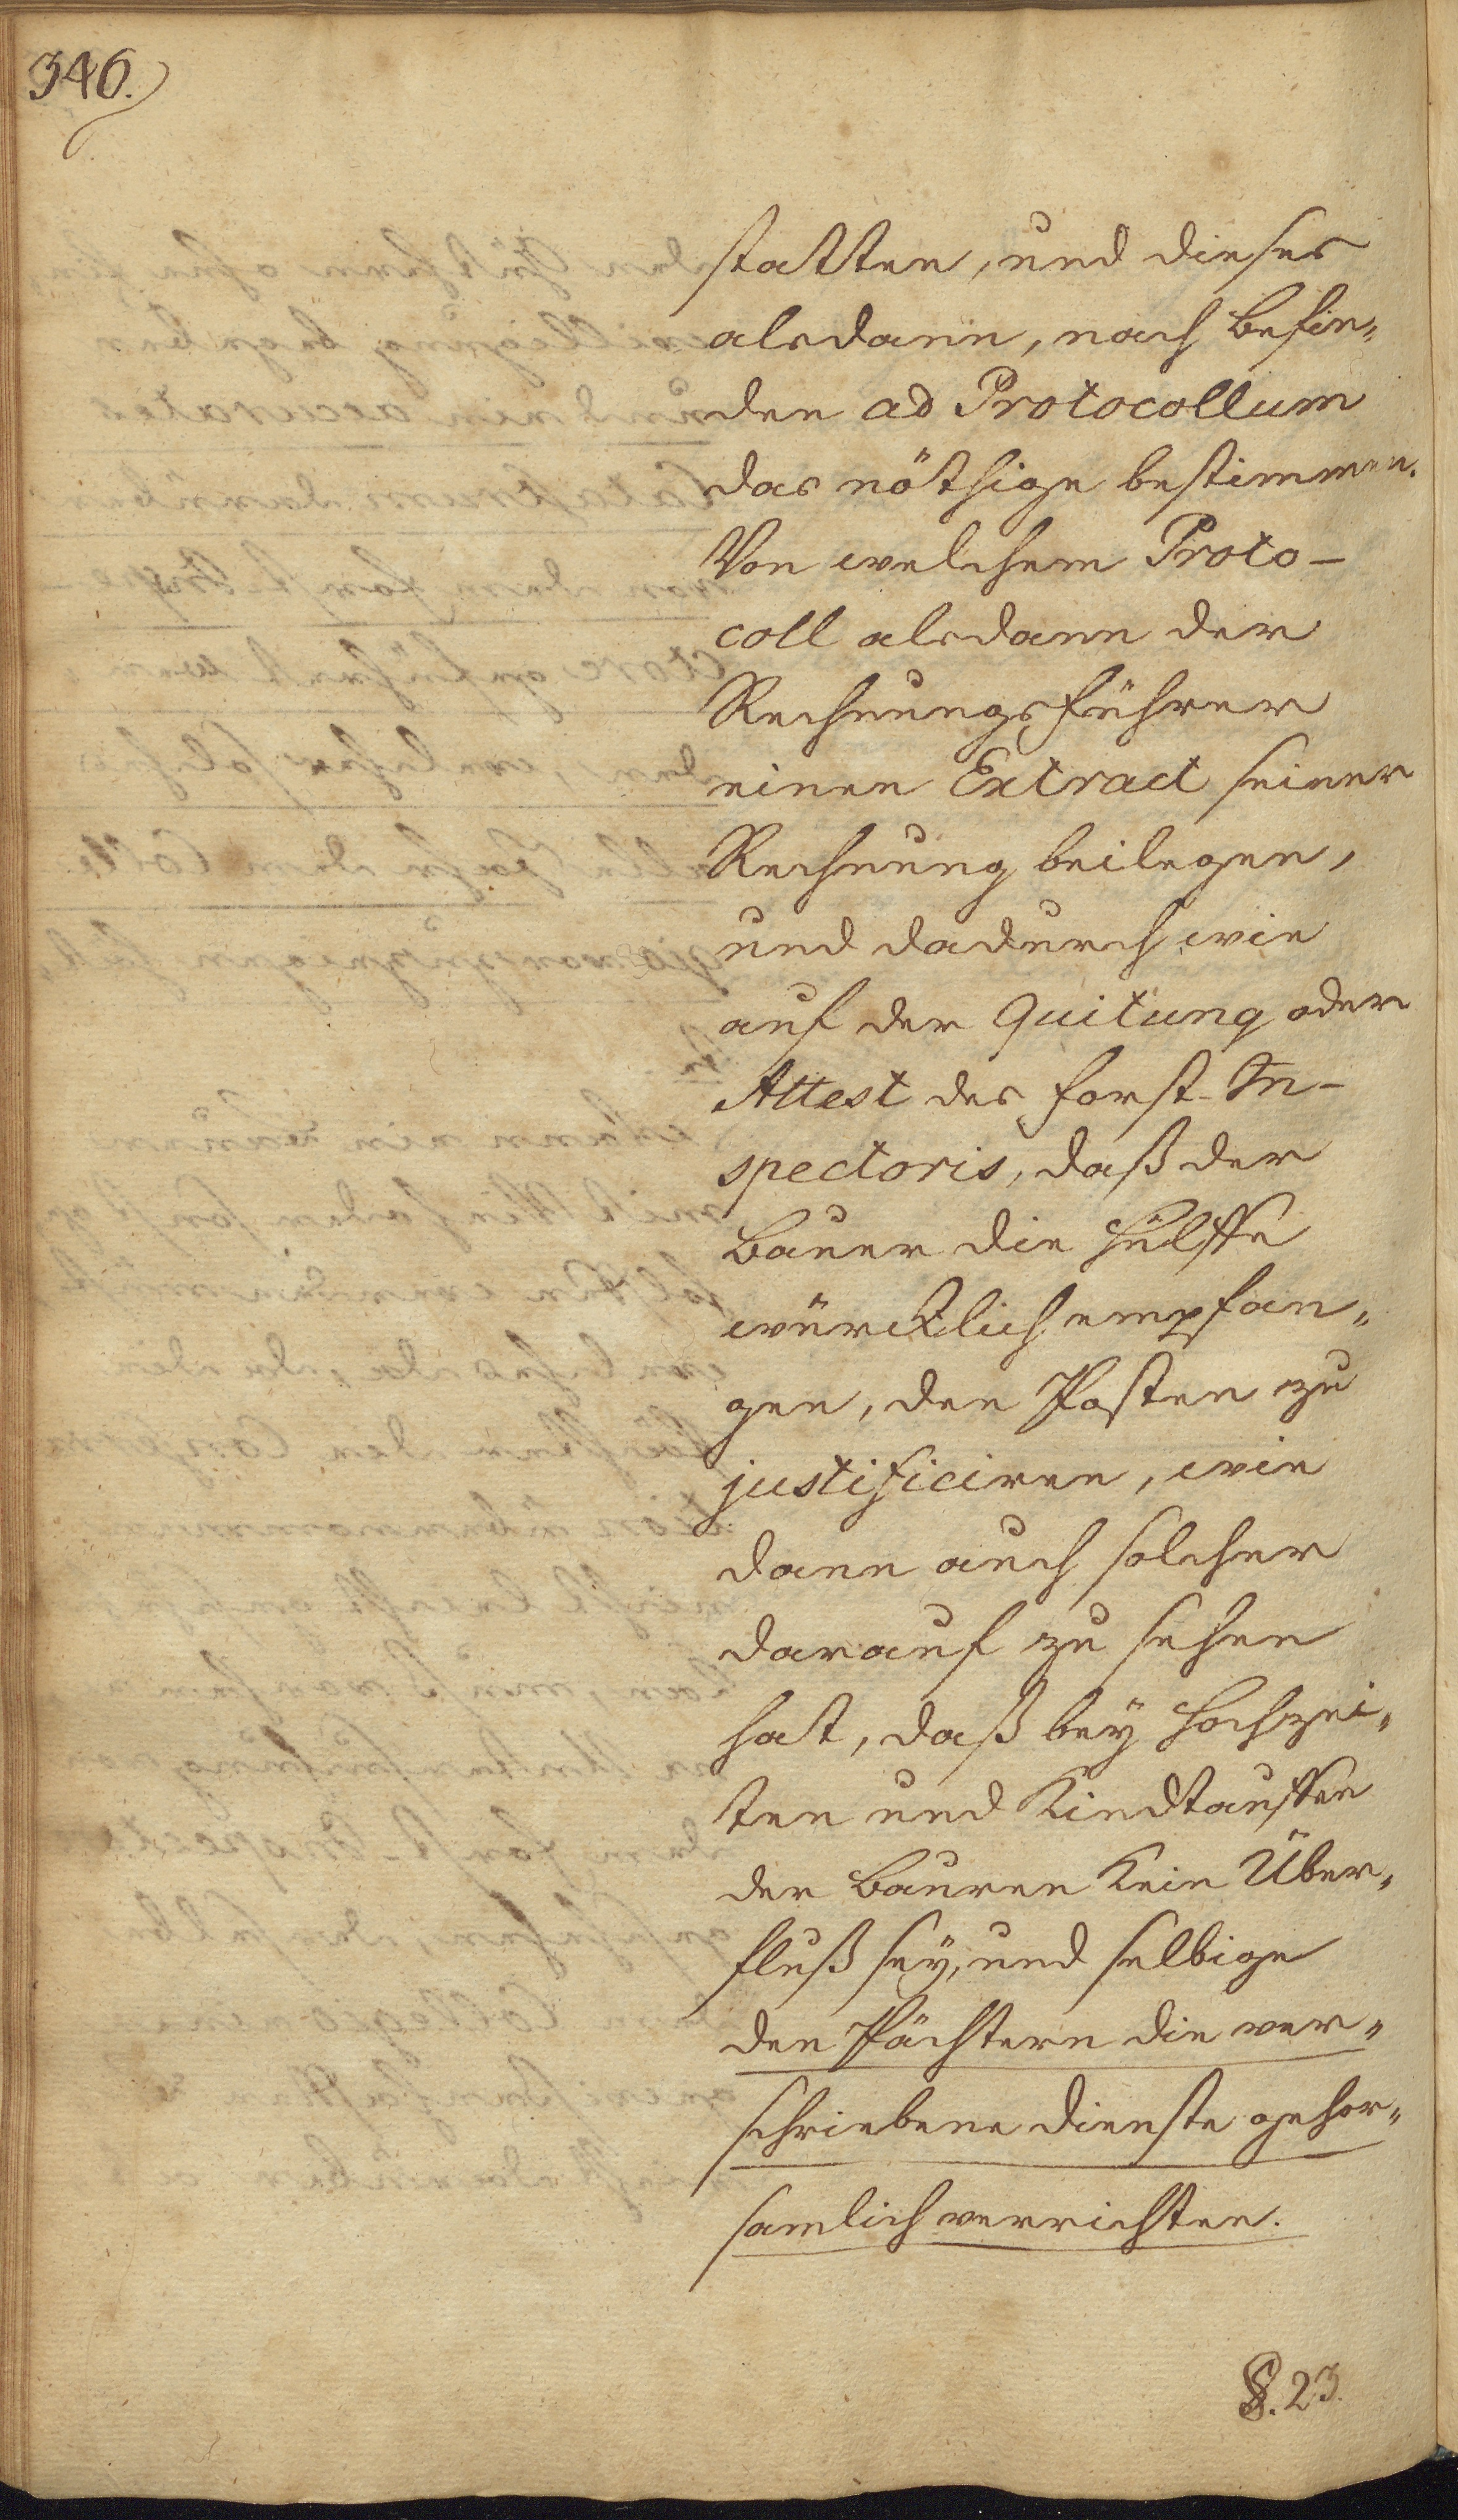 346.
statten, und dieses
alsdann, nach Befin„
den ad Protocollum
das nöthige bestimmen.
Von welchem Proto-
coll alsdann der
Rechnungsführer
einen Extract seiner
Rechnung beilegen,
und dadurch wie
auf der Quitung oder
Attest des Forst-In-
spectoris, daß der
Bauer die Hülffe
würcklich empfan„
gen, den Posten zu
justificiren, wie
dann auch solcher
darauf zu sehen
hat, daß bey Hochzei„
ten und Kindtauffen
der Bauren kein Über„
fluß sey, und selbige
den Pächtern die ver„
schriebene Dienste gehor„
samlich verrichten.
§. 23.